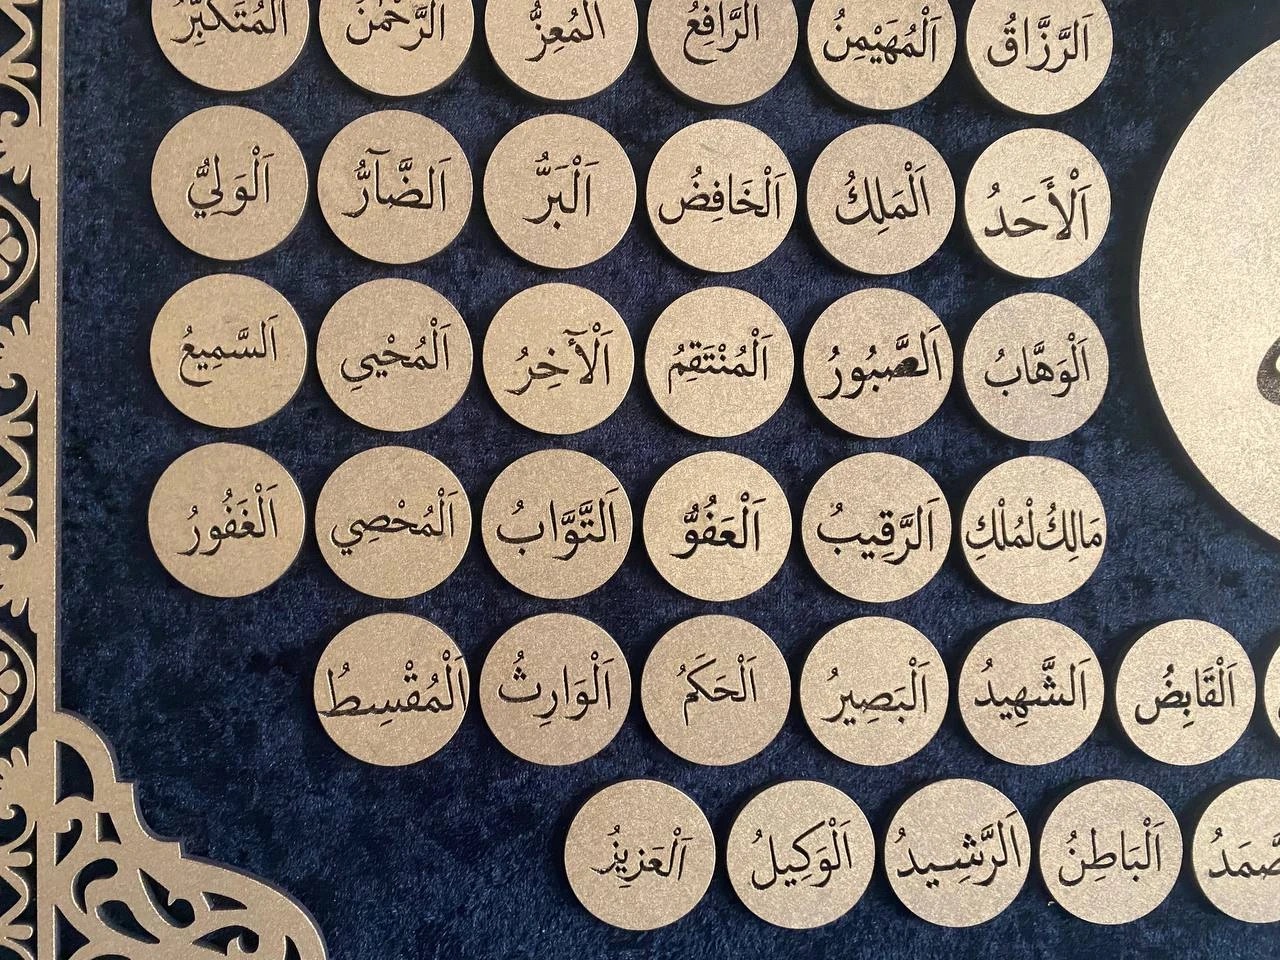 اَلرَّزَّاقُ اَلْمُهَيْمِنُ اَلرَّافِعُ اَلْمُعِزُّ اَلرَّحْمٰنُ اَلْمُتَكَبِّرُ
اَلْأَحَدُ اَلْمَلِكُ اَلْخَافِضُ اَلْبَرُّ اَلضَّآرُّ اَلْوَلِيُّ
اَلْوَهَّابُ اَلصَّبُورُ اَلْمُنْتَقِمُ اَلْأٓخِرُ اَلْمُحْيِي اَلسَّمِيعُ
مَالِكُ لْمُلْكِ اَلرَّقِيبُ اَلْعَفُوُّ اَلتَّوَّابُ اَلْمُحْصِي اَلْغَفُورُ
اَلْقَابِضُ اَلشَّهِيدُ اَلْبَصِيرُ اَلْحَكَمُ اَلْوَارِثُ اَلْمُقْسِطُ
اَلْبَاطِنُ اَلرَّشِيدُ اَلْوَكِيلُ اَلْعَزِيزُ